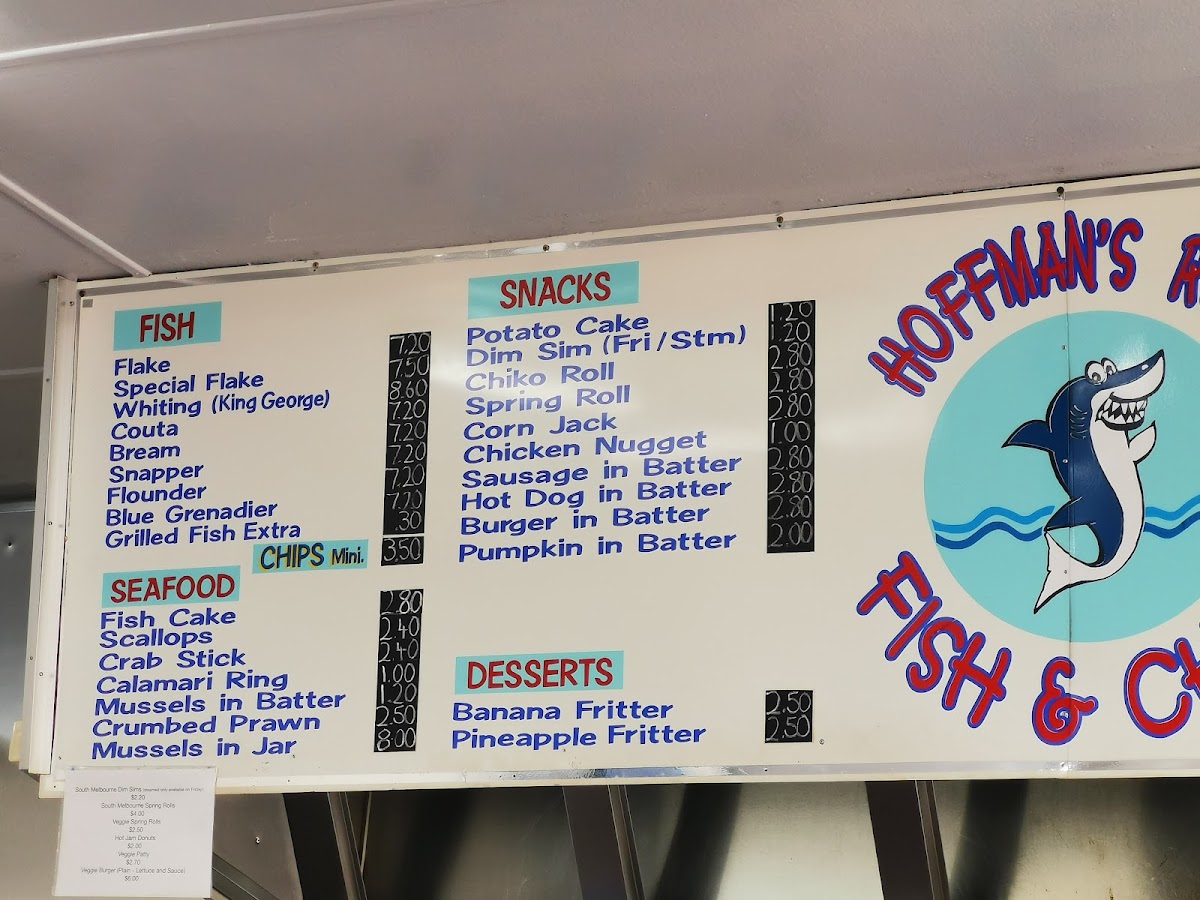 FISH
Flake 7.20
Special Flake 7.50
Whiting (King George) 8.60
Couta 7.20
Bream 7.20
Snapper 7.20
Flounder 7.20
Blue Grenadier 7.20
Grilled Fish Extra .30
CHIPS Mini. 3.50
SEAFOOD
Fish Cake 2.80
Scallops 2.40
Crab Stick 2.40
Calamari Ring 1.00
Mussels in Batter 1.20
Crumbed Prawn 2.50
Mussels in Jar 8.00
SNACKS
Potato Cake 1.20
Dim Sim (Fri/Stm) 1.20
Chiko Roll 2.80
Spring Roll 2.80
Corn Jack 2.80
Chicken Nugget 1.00
Sausage in Batter 2.80
Hot Dog in Batter 2.80
Burger in Batter 2.80
Pumpkin in Batter 2.00
DESSERTS
Banana Fritter 2.50
Pineapple Fritter 2.50
HOFFMAN'S
FISH & CH
South Melbourne Dim Sims (steamed only available on Friday)
$2.20
South Melbourne Spring Rolls
$4.00
Veggie Spring Rolls
$2.50
Hot Jam Donuts
$2.00
Veggie Patty
$2.70
Veggie Burger (Plain - Lettuce and Sauce)
$6.00